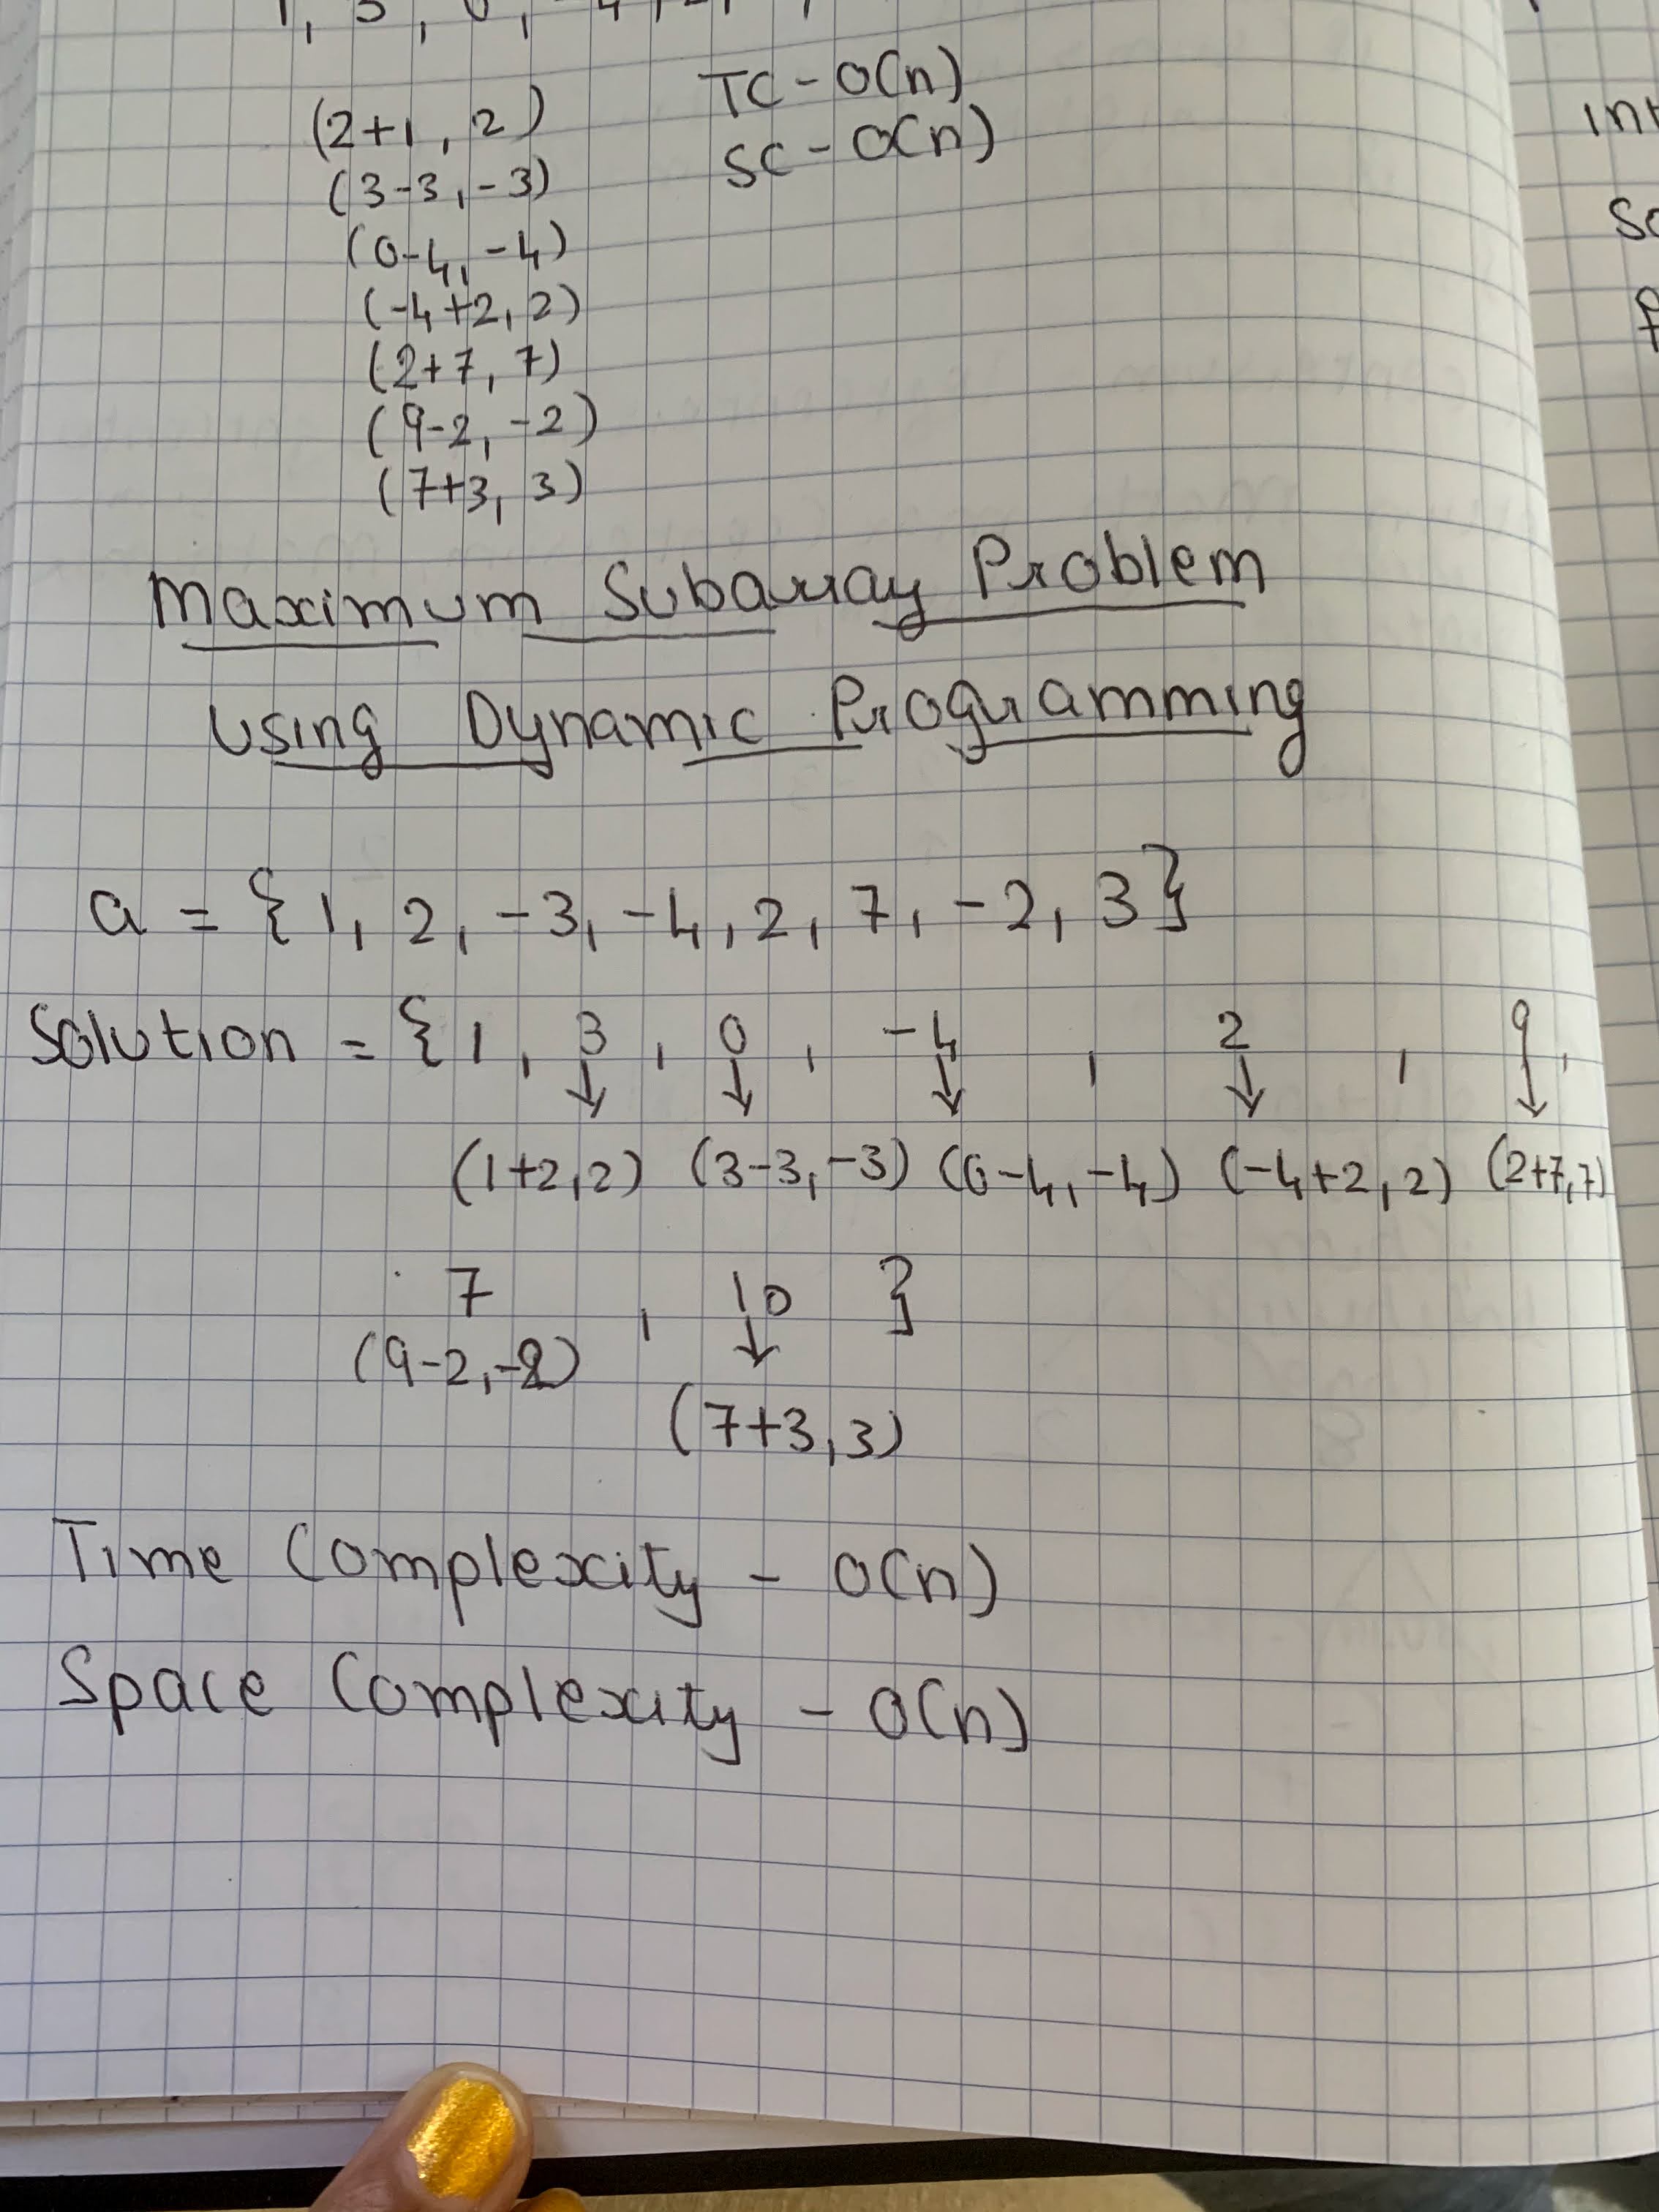 (2+1, 2)
TC - O(n)
(3-3, -3)
SC - O(n)
(0-4, -4)
(-4+2, 2)
(2+7, 7)
(9-2, -2)
(7+3, 3)
Maximum Subarray Problem
Using Dynamic Programming
a = {1, 2, -3, -4, 2, 7, -2, 3}
Solution = {1, 3, 0, -4, 2, 9,
↓ ↓ ↓ ↓ ↓
(1+2, 2) (3-3, -3) (0-4, -4) (-4+2, 2) (2+7, 7)
7, 10 }
(9-2, -2) ↓
(7+3, 3)
Time Complexity - O(n)
Space Complexity - O(n)